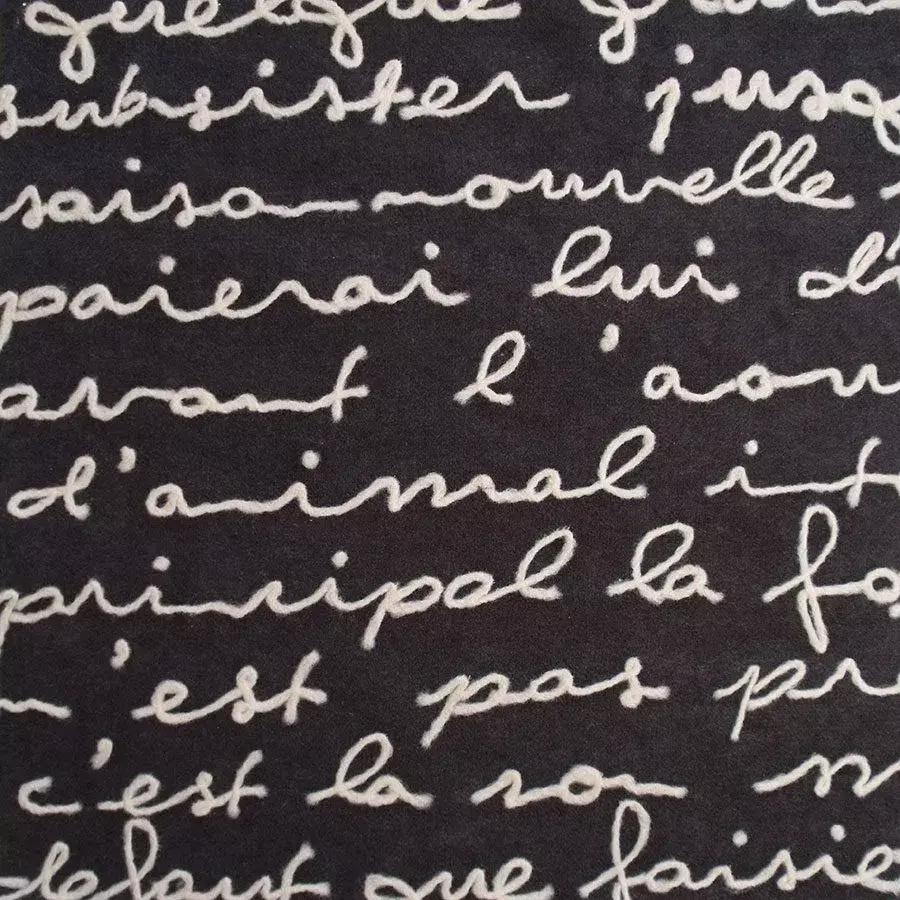 quelque grain
subsister jusq
saison nouvelle
paierai lui d'i
avant l'aou
d'animal int
principal la fo
n'est pas pr
c'est la son m
défaut que faisie